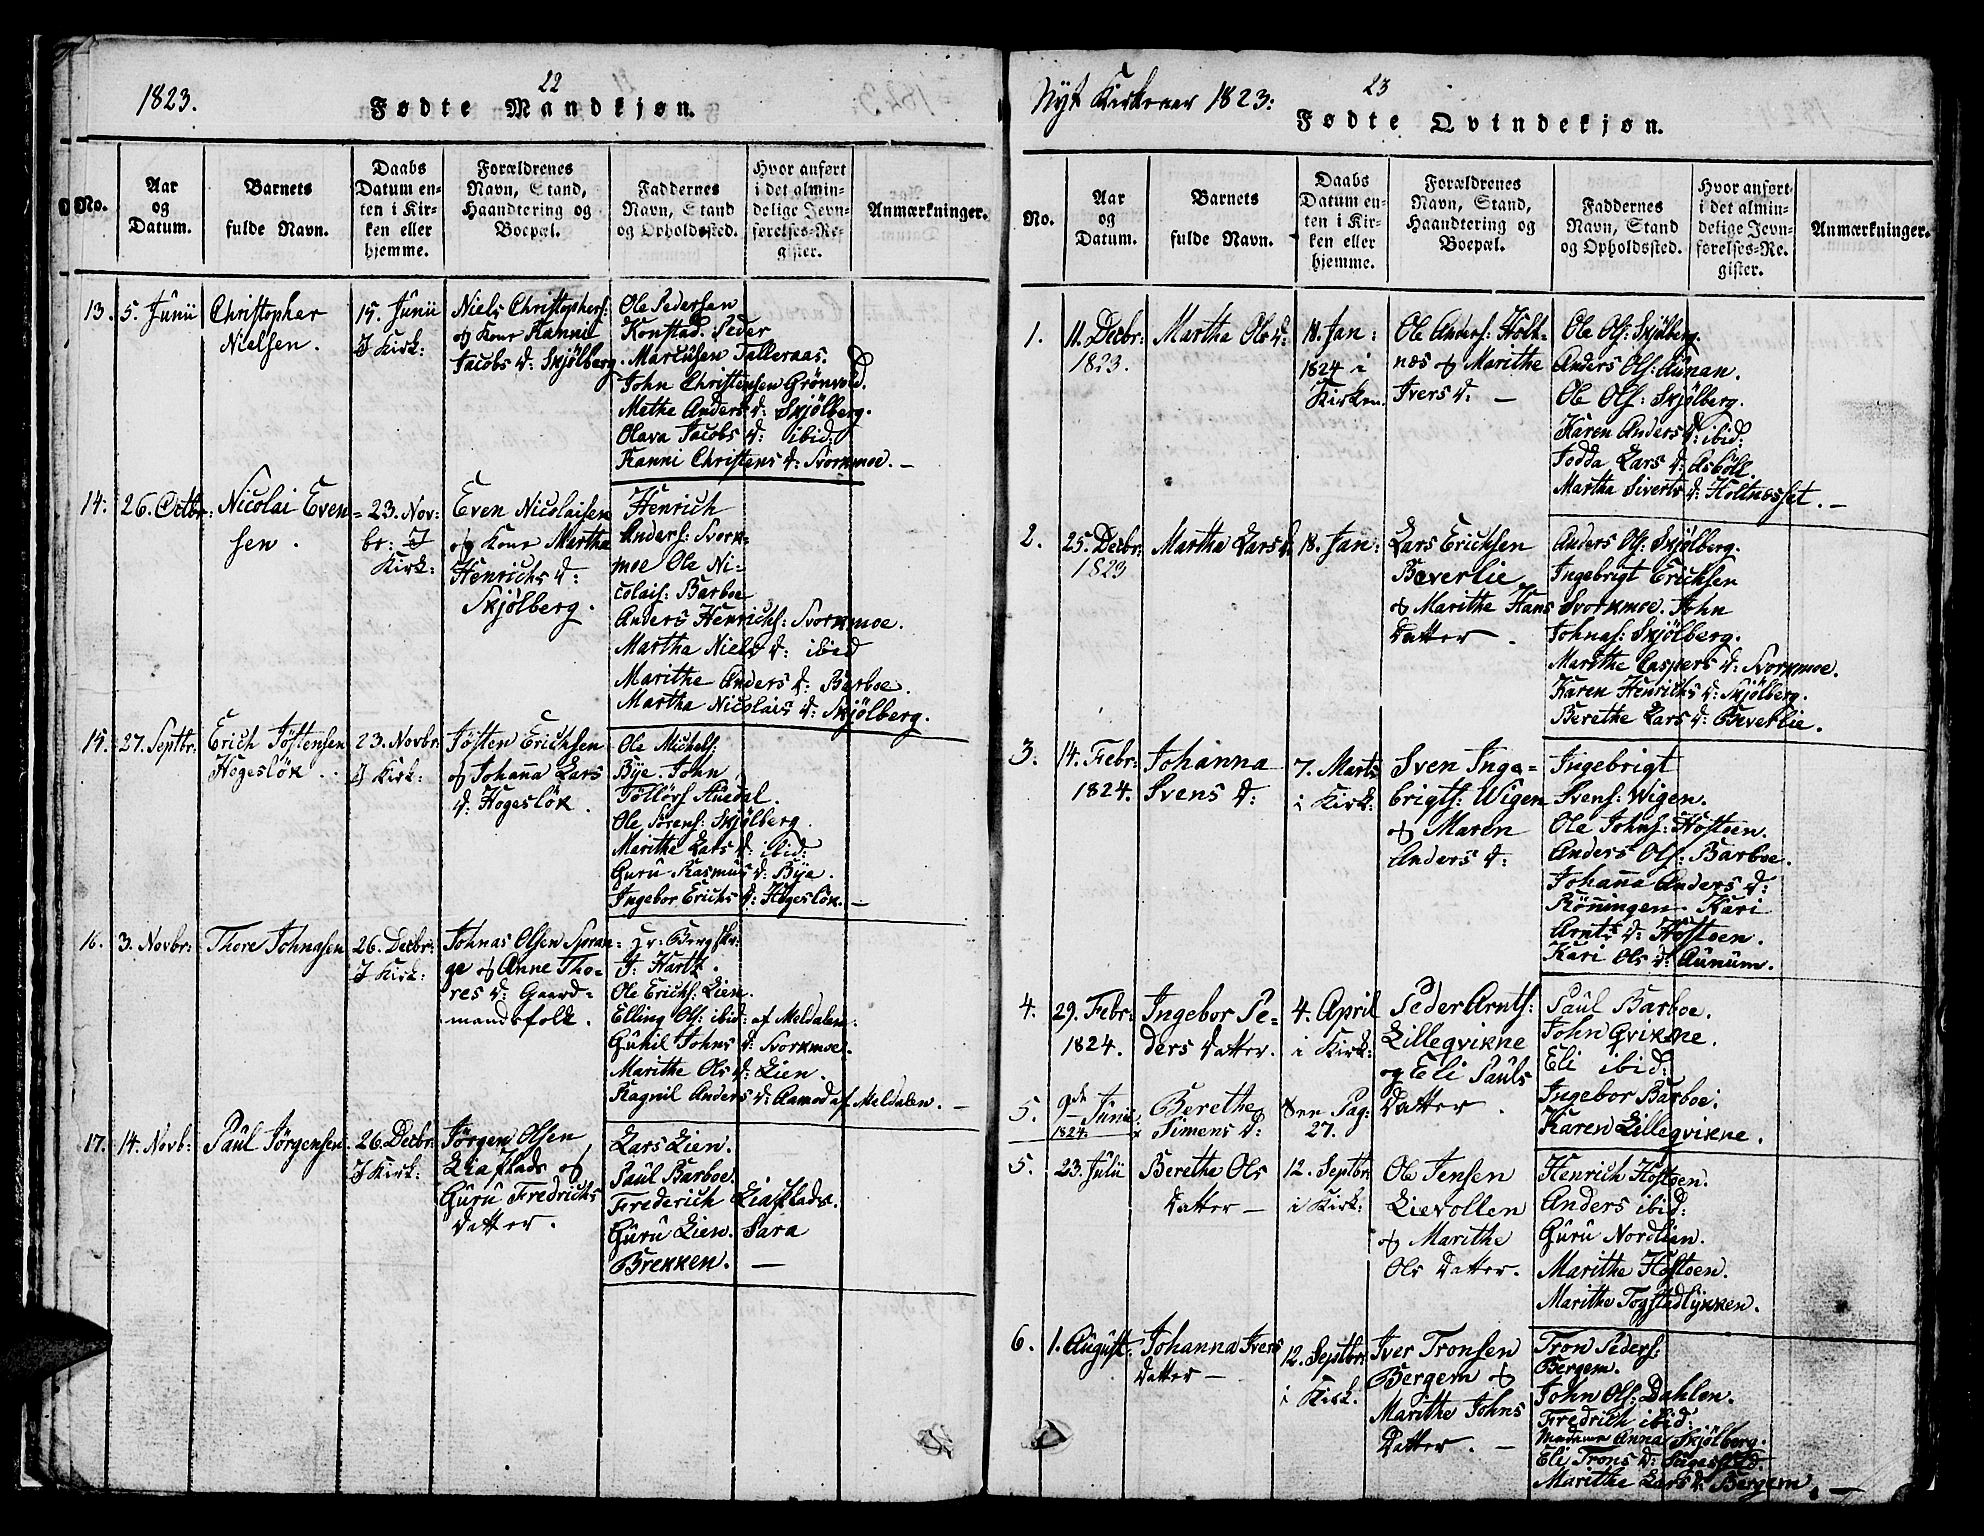 1823.
22
Fødte Mandkjøn.
No.
Aar
og
Datum.
Barnets
fulde Navn.
Daabs
Datum en-
ten i Kir-
ken eller
hjemme.
Forældrenes
Navn, Stand,
Haandtering og
Boepæl.
Faddernes
Navn, Stand
og Opholdssted.
Hvor anført
i det almin-
delige Jevn-
førelses-Re-
gister.
Anmærkninger.
13.
5. Junii
Christopher
Nielsen.
15. Junii
I Kirk:
Niels Christophers:
og Kone Kanni
Jacobs d: Skjølberg
Ole Pedersen
Konstad. Peder
Marcusen Talleraas.
John Christensen Grönvold.
Mathe Anders d: Skjølberg.
Olava Jacobs d: ibid:
Kanni Christens d: Svorkmoe. —
14.
26. Octbr:
Nicolai Even=
sen.
23. Nov-
br: I
Kirk:
Even Nicolaisen
og Kone Martha
Henrichs d:
Skjølberg.
Henrich
Anders: Svork-
moe Ole Ni-
colais: Barboe
Anders Henrichs: Svorkmoe.
Martha Niels d: ibid
Marithe Anders d: Barboe.
Martha Nicolais d: Skjølberg.
15.
27. Septbr:
Erich Jöstensen
Hogeslök.
23. Novbr:
I Kirk:
Jösten Erichsen
og Johanna Lars
d: Hogeslök.
Ole Michels:
Bye. John
Töllörs
Ole Sörens: Skjølberg.
Marithe Lars d: ibid:
Guru Rasmus d: Bye.
Ingebor Erichs d: Hogeslök. —
16.
3. Novbr:
Thore Johnasen
26. Decbr:
I Kirk:
Johnas Olsen Spran=
ge og Anne Tho-
res d: Gaard-
mandsfolk.
Hr: Bergskr:
J: Hartz.
Ole Erichs: Lien.
Elling Ols: ibid: af Meldalen:
Guhil Johns d: Svorkmoe.
Marithe Ols d: Lien.
Ragnil Anders d: Aamod af Meldalen. —
17.
14. Novb:
Paul Jørgensen
26. Decbr:
I Kirk:
Jørgen Olsen
Liaflads og
Guru Fredrichs
Datter.
Lars Lien.
Paul Barboe.
Frederich Liafladsv.
Guru Lien. Sara
Brekken. —
Nyt Kirkeaar 1823:
23
Fødte Qvindekjøn.
No.
Aar
og
Datum.
Barnets
fulde Navn.
Daabs
Datum en-
ten i Kir-
ken eller
hjemme.
Forældrenes
Navn, Stand,
Haandtering og
Boepæl.
Faddernes
Navn, Stand
og Opholdssted.
Hvor anført
i det almin-
delige Jevn-
førelses-Re-
gister.
Anmærkninger.
1.
11. Decbr:
1823.
Martha Ols d:
18. Jan:
1824 i
Kirken.
Ole Anders: Holt-
næs og Marithe
Ivers d: —
Ole Ols: Skjølberg.
Anders Ols: Aunan.
Ole Ols: Skjølberg.
Karen Anders d: ibid:
Todda Lars d: Asböll
Martha Siverts d: Holtnæsset. —
2.
25. Decbr:
1823
Martha Lars d:
18. Jan:
Lars Erichsen
Beverlie
og Marithe Hans
Datter —.
Anders Ols: Skjølberg.
Ingebrigt Erichsen
Svorkmoe. John
Johnas: Skjølberg.
Marithe Caspers d: Svorkmoe.
Karen Henrichs d: Skjølberg.
Berethe Lars d: Beverlie.
3.
14. Febr:
1824.
Johanna
Svens d:
7. Marts
i Kirk:
Sven Inge-
brigts: Wigen
og Maren
Anders d:
Ingebrigt
Svens: Wigen.
Ole Johns: Hostoen.
Anders Ols: Barboe.
Johanna Anders d:
Rönningen. Kari
Arnts d: Hostoen.
Kari Ols d: Aunum.
4.
29. Febr:
1824.
Ingebor Pe-
ders Datter.
4. April
i Kirk:
Peder Arnts:
Lillegvikne
og Eli Pauls
Datter.
Paul Barboe.
John Gvikne.
Eli ibid:
Ingebor Barboe.
Karen Lillegvikne.
5.
9de Junii
1824.
Berethe
Simens d:
See Pag:
27.
5.
23. Julii
Berethe Ols
Datter —
12. Septbr:
i Kirk:
Ole Jensen
Lievollen
og Marithe
Ols Datter.
Henrich Hostoen.
Anders ibid:
Guru Nordlien.
Marithe Hostoen.
Marithe Togstadlykken.
6.
1. August.
Johanna Ivers
Datter —
12. Septbr:
i Kirk:
Iver Tronsen
Bergem og
Marithe Johns
Datter. —
Tron Peders:
Bergem.
John Ols: Dahlen.
Fredrich ibid:
Madame Anna Skjølberg.
Eli Trons d:
Marithe Lars d: Bergem. —